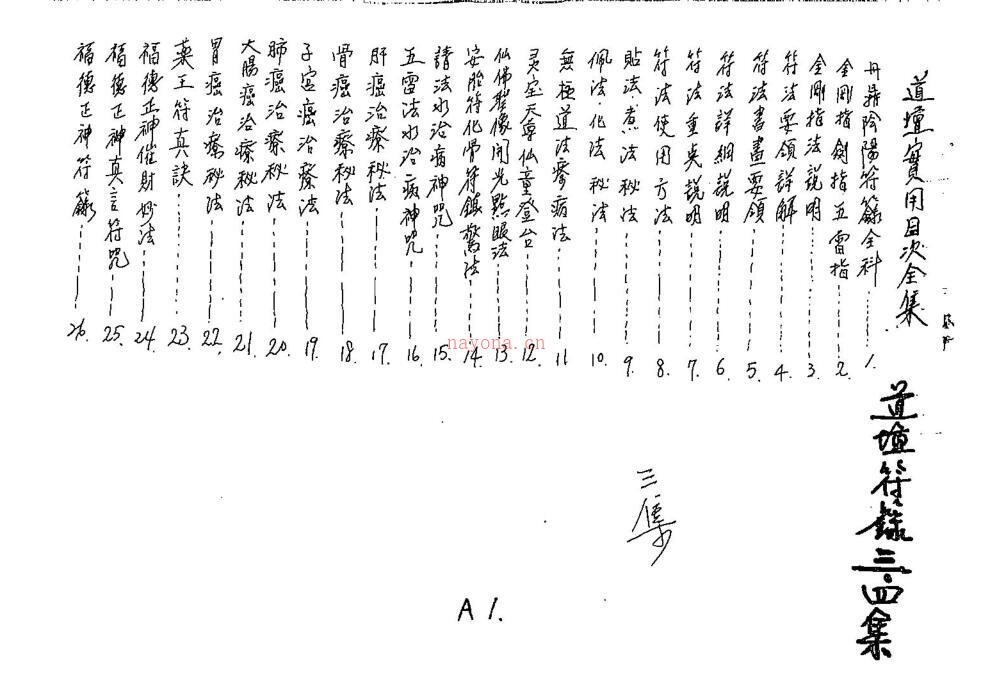 道壇實用目次全集
丹鼎陰陽符籙全科 1.
金剛指劍指五雷指 2.
金剛指法說明 3.
符法要領詳解 4.
符法書畫要領 5.
符法詳細說明 6.
符法重點說明 7.
符法使用方法 8.
貼法·煮法秘法 9.
佩法·化法秘法 10.
無極道法療病法 11
灵宝天尊仙童登台 12.
仙佛聖像開光點眼法 13.
安胎符化骨符鎮驚法 14.
請法水治病神咒 15.
五雷法水治病神咒 16.
肝癌治療秘法 17.
骨癌治療秘法 18.
子宮癌治療法 19.
肺癌治療秘法 20.
大腸癌治療秘法 21.
胃癌治療秘法 22.
薬王符真訣 23.
福德正神催財妙法 24.
福德正神真言符咒 25.
福德正神符籙 26.
道壇符錄三·四集
三集
A1.
nayona.cn